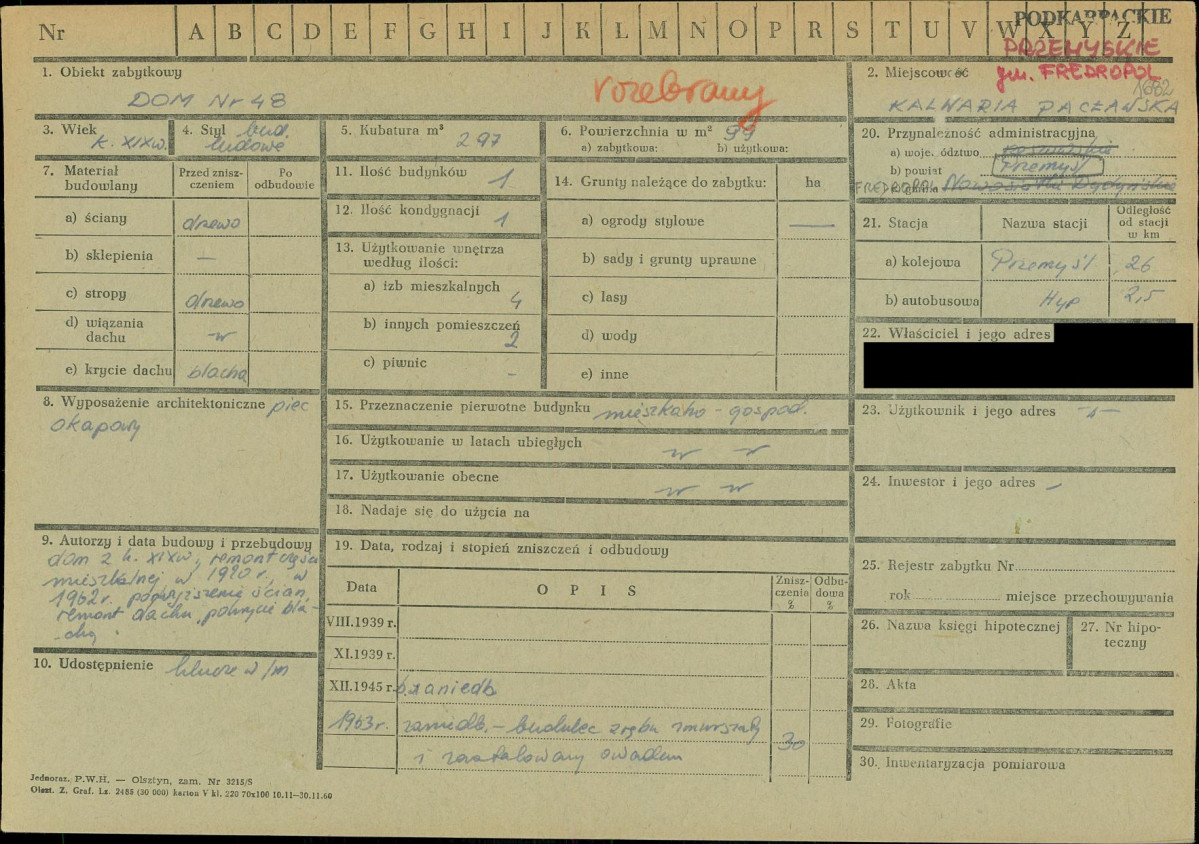 Nr A B C D E F G H I J K Ł M N O P R S T U V W X Y Z
PODKARPACKIE
PRZEMYSKIE
gm. FREDROPOL
1. Obiekt zabytkowy
DOM Nr 48
rozebrany
2. Miejscowość
1682
KALWARIA PACŁAWSKA
3. Wiek
k. XIXw.
4. Styl bud.
ludowe
5. Kubatura m³
297
6. Powierzchnia w m² 99
a) zabytkowa: b) użytkowa:
20. Przynależność administracyjna
a) woje. ództwo Rzeszowskie
b) powiat Przemyśl
FREDROPOL Nowosiółki Dydyńskie
7. Materiał
budowlany
Przed znisz-
czeniem
Po
odbudowie
a) ściany drewo
b) sklepienia —
c) stropy drewo
d) wiązania
dachu -"-
e) krycie dachu blacha
11. Ilość budynków 1
12. Ilość kondygnacji 1
13. Użytkowanie wnętrza
według ilości:
a) izb mieszkalnych
4
b) innych pomieszczeń
2
c) piwnic -
14. Grunty należące do zabytku: ha
a) ogrody stylowe —
b) sady i grunty uprawne
c) lasy
d) wody
e) inne
21. Stacja Nazwa stacji
Odległość
od stacji
w km
a) kolejowa Przemyśl 26
b) autobusowa Hyp 2,5
22. Właściciel i jego adres
8. Wyposażenie architektoniczne piec
okapowy
15. Przeznaczenie pierwotne budynku mieszkalno - gospod.
16. Użytkowanie w latach ubiegłych
-"- -"-
17. Użytkowanie obecne
-"- -"-
18. Nadaje się do użycia na
23. Użytkownik i jego adres -"-
24. Inwestor i jego adres -
9. Autorzy i data budowy i przebudowy
dom z k. XIXw., remont części
mieszkalnej w 1920 r., w
1962r. podwyższenie ścian,
remont dachu, pokrycie bla-
chą.
10. Udostępnienie klucze w/m
19. Data, rodzaj i stopień zniszczeń i odbudowy
Data O P I S
Znisz-
czenia
%
Odbu-
dowa
%
VIII.1939 r.
XI.1939 r.
XII.1945 r. b. zaniedb.
1963r. zaniedb. - budulec zrębu zmurszały
30
i zaatakowany owadem
25. Rejestr zabytku Nr
rok miejsce przechowywania
26. Nazwa księgi hipotecznej
27. Nr hipo-
teczny
28. Akta
29. Fotografie
30. Inwentaryzacja pomiarowa
Jednoraz. P.W.H. — Olsztyn, zam. Nr 3215/S
Olszt. Z. Graf. Lz. 2485 (30 000) karton V kl. 220 70x100 10.11—30.11.60